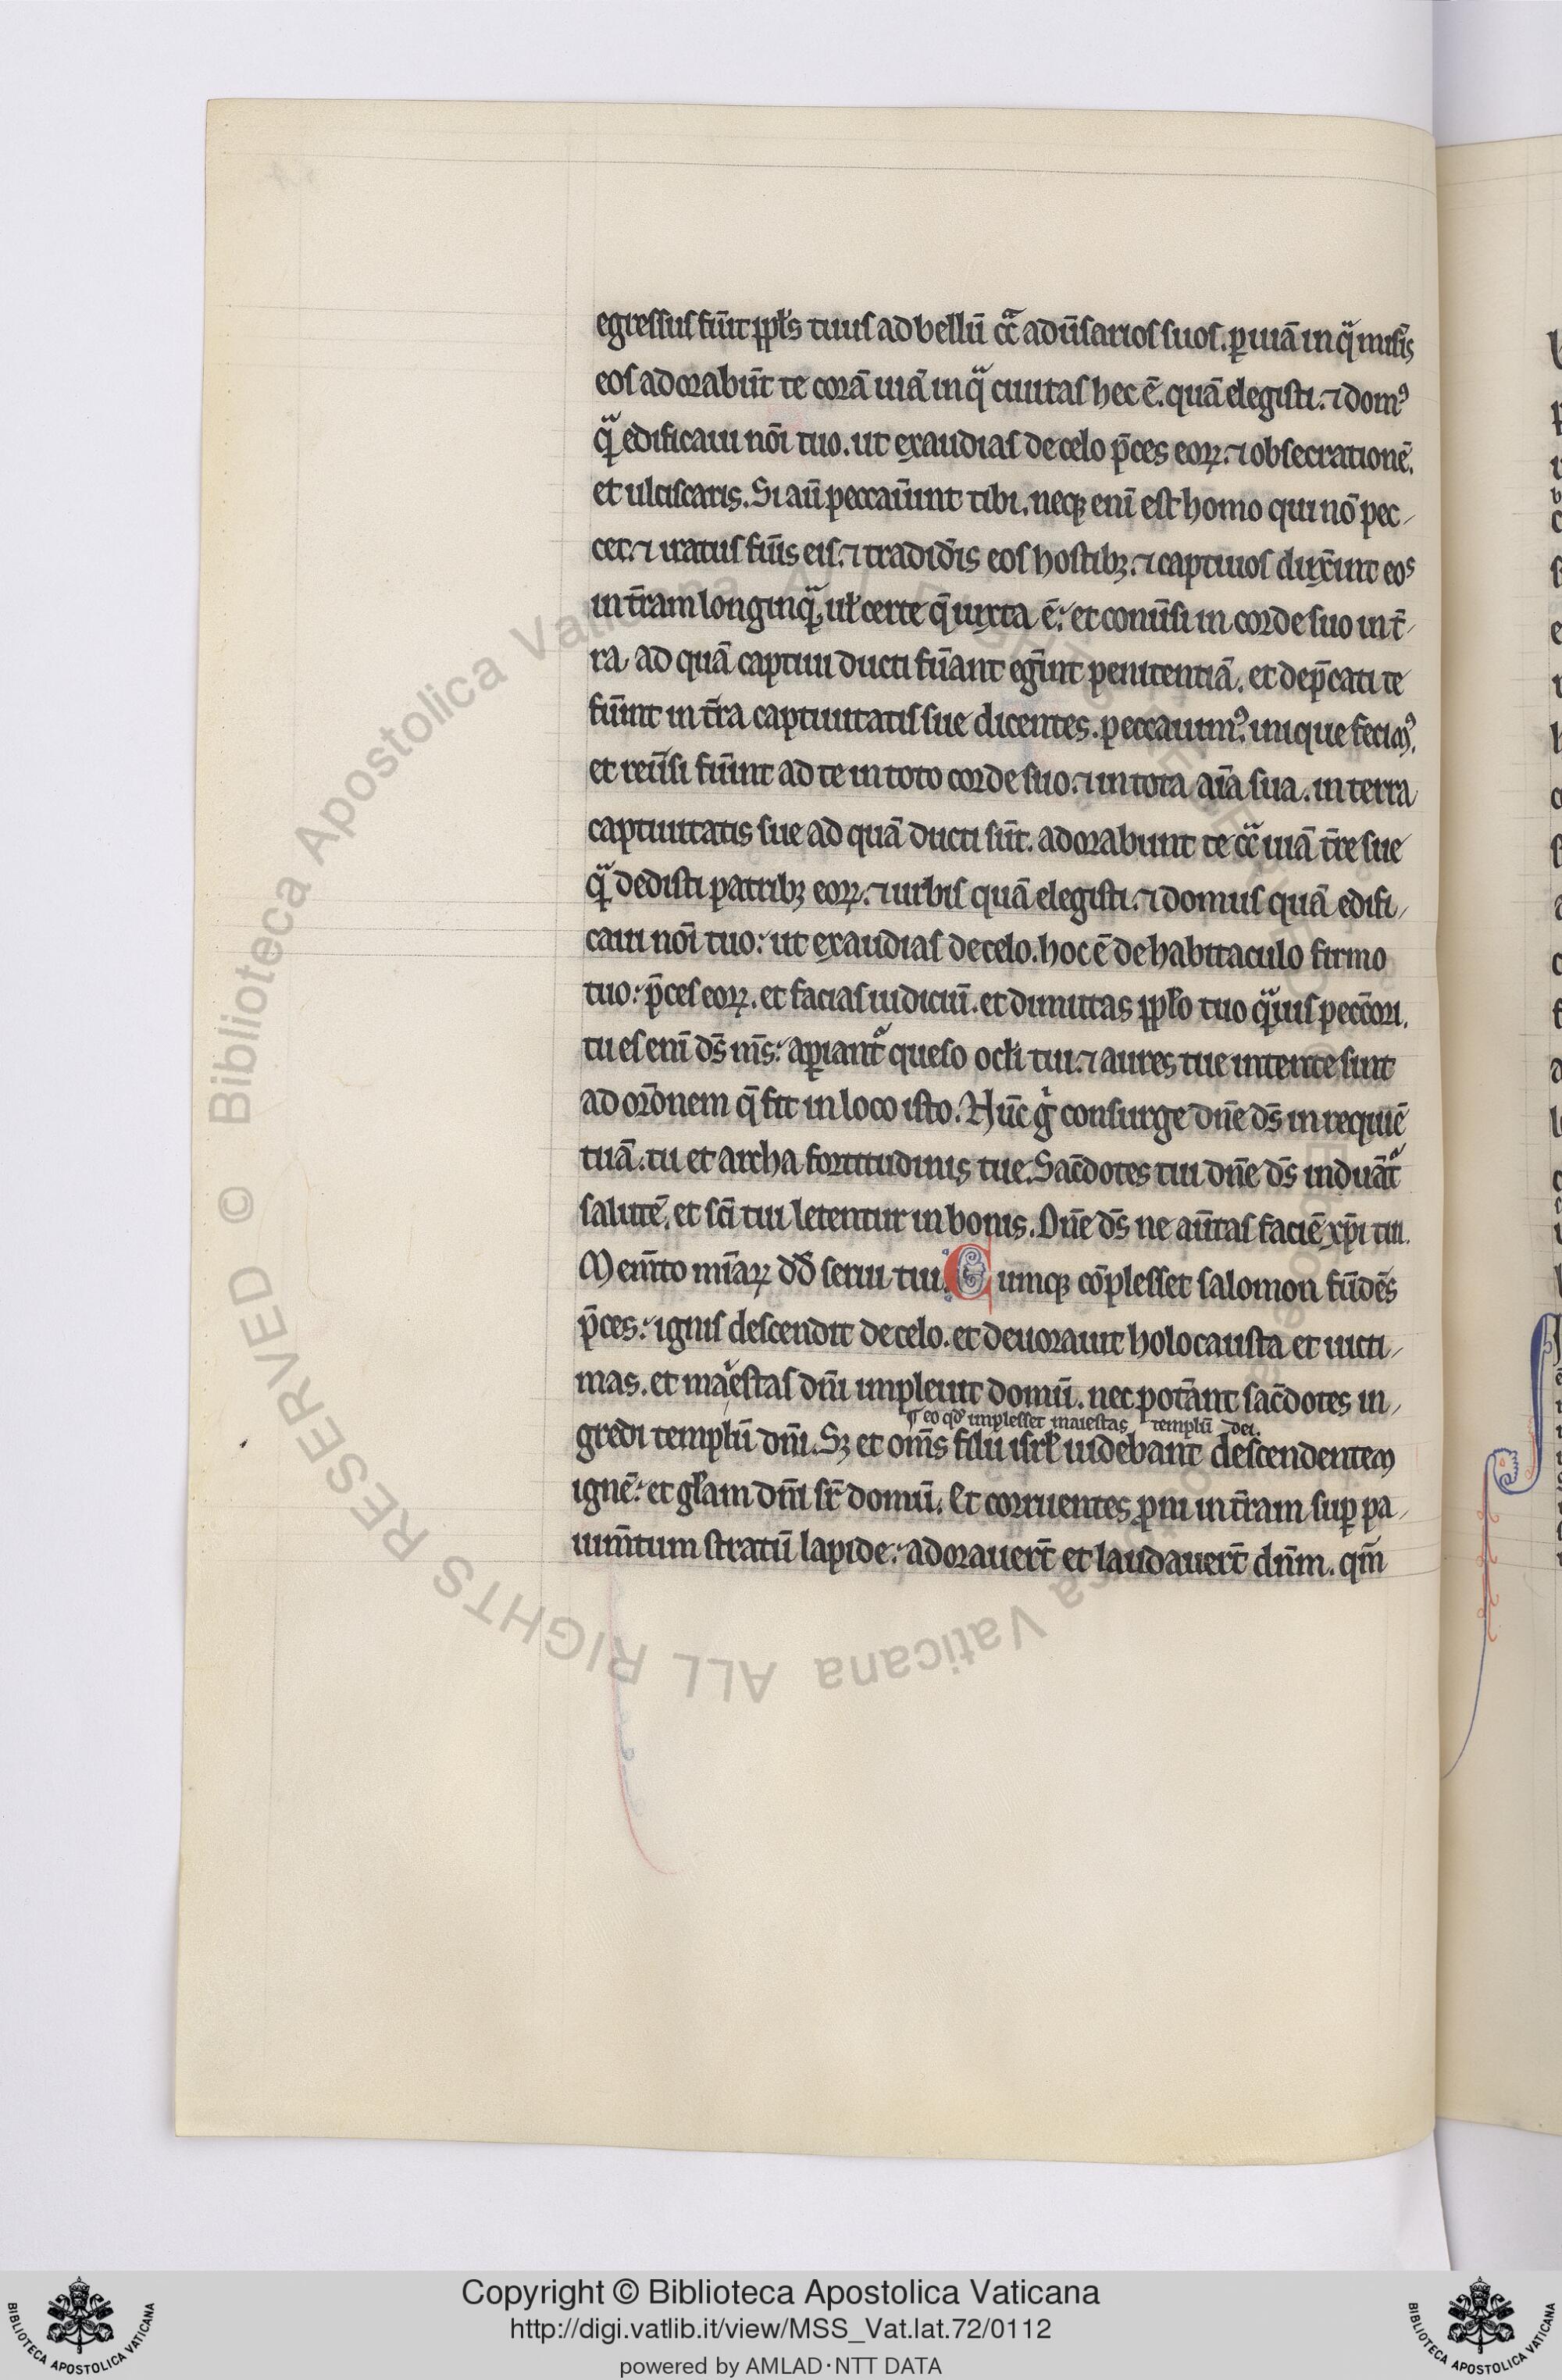 egressus fũit ppl̃s tuus ad bellũ cͣ adũsarios suos. ꝑ uiã in qͣ miſ̃is
eos adorabũt te corã uiã in qͣ ciuitas hec ẽ. quã elegisti. ⁊ domꝰ
qͣ edificaui nõi tuo. ut exaudias de celo p̃ces eoꝝ. ⁊ obsecrationẽ.
et ulciscaris. Si aũ peccaũint tibi. neqꝫ eni ̃ est homo qui nõ pec
cet. ⁊ iratus fũis eis. ⁊ tradid̃is eos hostibꝫ. ⁊ captiuos dux̃int eos
in t̃ram longinqͣ. ul̃ certe q̃ iuxta ẽ. et conũsi in corde suo in t̃
ra ad quã captiui ducti fũant eg̃int penitentiã. et dep̃cati te
fũint in t̃ra captiuitatis sue dicentes. peccauimꝰ. inique fecimꝰ.
et reũsi fũint ad te in toto corde suo. ⁊ in tota aĩa sua. in terra
captiuitatis sue ad quã ducti sũt. adorabunt te cͣ uiã t̃re sue
qͣ dedisti patribꝫ eoꝝ. ⁊ urbis quã elegisti. ⁊ domus quã edifi
caui nõi tuo. ut exaudias de celo. hoc ẽ de habitaculo firmo
tuo. p̃ces eoꝝ. et facias iudiciũ. et dimittas ppl̃o tuo qͣuis pecc̃ori.
tu es eni ̃ ds̃ ms̃. aꝑiantᷣ queso ocl̃i tui. ⁊ aures tue intente sint
ad or̃onem q̃ fit in loco isto. Nũc gͥ consurge dñe ds̃ in requiẽ
tuã. tu et archa fortitudinis tue. Sac̃dotes tui dñe ds̃ induãtᷣ
salutẽ. et sc̃i tui letentur in bonis. Dñe ds̃ ne aũtas faciẽ xp̃i tui.
Mem̃to mĩaꝝ dd̃ serui tui. Cumqꝫ cõplesset salomon fũdẽs
p̃ces. ignis descendit de celo. et deuorauit holocausta et uicti
mas. et maiestas dñi impleuit domũ. nec pot̃ant sac̃dotes in
eo qd̃ implesset maiestas templũ dei.
gredi templũ dñi. Sꝫ et om̃s filii isrl̃ uidebant descendentem
ignẽ. et gl̃am dñi sr̃ domũ. Et corruentes ꝓni in t̃ram suꝑ pa
uim̃tum stratũ lapide. adorauer̃t et laudauer̃t dñm. qm̃
Copyright © Biblioteca Apostolica Vaticana
http://digi.vatlib.it/view/MSS_Vat.lat.72/0112
powered by AMLAD·NTT DATA
BIBLIOTECA APOSTOLICA VATICANA
BIBLIOTECA APOSTOLICA VATICANA
© Biblioteca Apostolica Vaticana ALL RIGHTS RESERVED